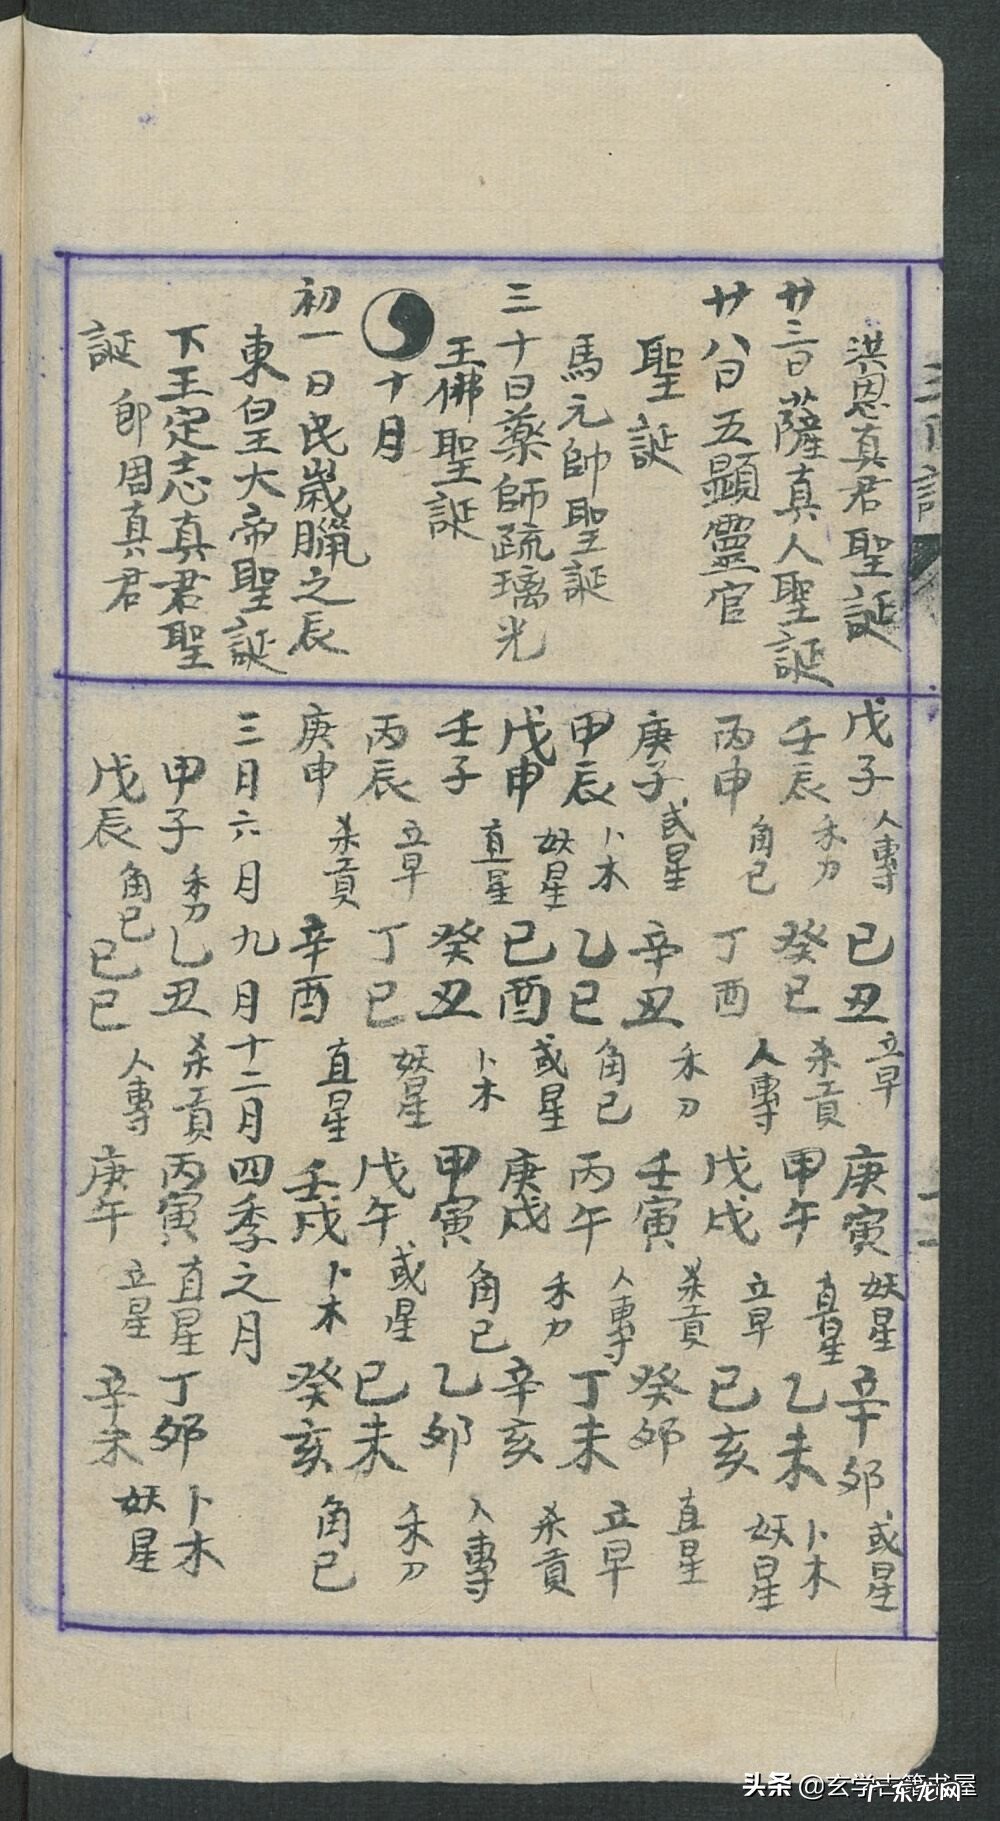 洪恩真君聖誕
廿三日薩真人聖誕
廿八日五顯靈官
聖誕
馬元帥聖誕
三十日藥師疏璃光
王佛聖誕
十月
初一日民歲臘之辰
東皇大帝聖誕
下王定志真君聖
誕 郎周真君
戊子 人專 己丑 立早 庚寅 妖星 辛卯 或星
壬辰 禾刀 癸巳 杀貢 甲午 直星 乙未 卜木
丙申 角巳 丁酉 人專 戊戌 立早 己亥 妖星
庚子 或星 辛丑 禾刀 壬寅 杀貢 癸卯 直星
甲辰 卜木 乙巳 角巳 丙午 人專 丁未 立早
戊申 妖星 己酉 或星 庚戌 禾刀 辛亥 杀貢
壬子 直星 癸丑 卜木 甲寅 角巳 乙卯 人專
丙辰 立早 丁巳 妖星 戊午 或星 己未 禾刀
庚申 杀貢 辛酉 直星 壬戌 卜木 癸亥 角巳
三月六月九月十二月四季之月
甲子 禾刀 乙丑 杀貢 丙寅 直星 丁卯 卜木
戊辰 角巳 己巳 人專 庚午 立星 辛未 妖星
头条 @玄学古籍书屋
广东龙网